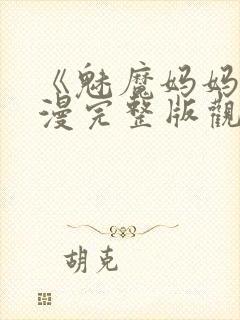 《魅魔妈妈
漫完整版觀
胡克